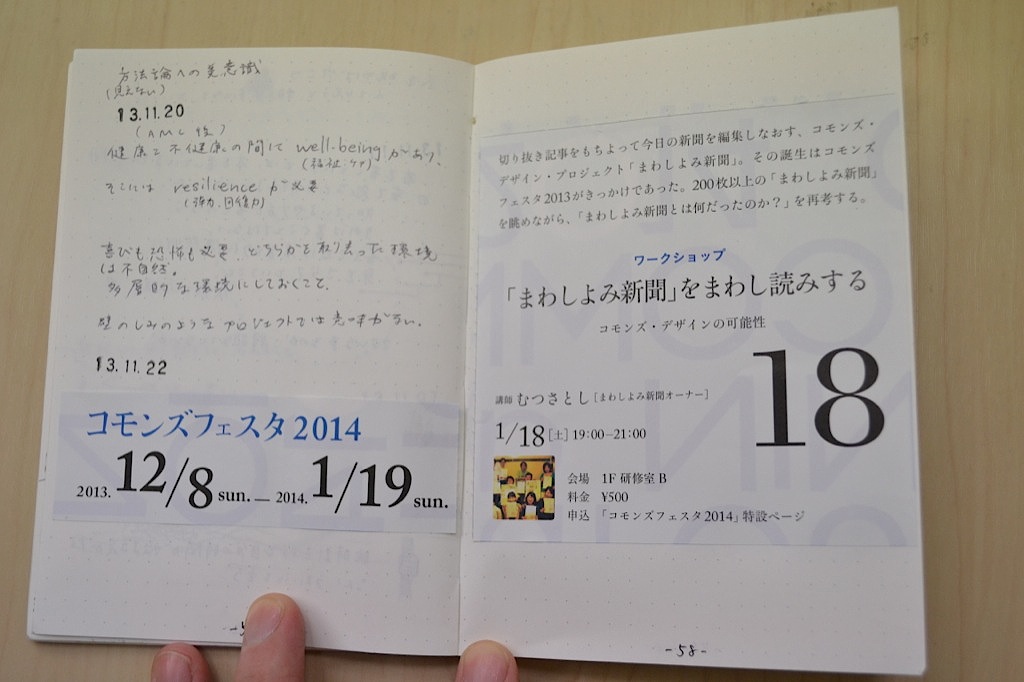 方法論への美意識
(見えない)
13.11.20
(AMC 性)
健康と不健康の間に well-being があり、
(福祉・ケア)
そこには resilience が必要
(弾力、回復力)
喜びも恐怖も必要、どちらかを取り去った環境
は不自然。
多層的な環境にしておくこと。
壁のしみのようなプロジェクトでは意味がない。
13.11.22
コモンズフェスタ2014
2013. 12/8 sun. — 2014. 1/19 sun.
切り抜き記事をもちよって今日の新聞を編集しなおす、コモンズ・
デザイン・プロジェクト「まわしよみ新聞」。その誕生はコモンズ
フェスタ2013がきっかけであった。200枚以上の「まわしよみ新聞」
を眺めながら、「まわしよみ新聞とは何だったのか?」を再考する。
ワークショップ
「まわしよみ新聞」をまわし読みする
コモンズ・デザインの可能性
18
講師 むつさとし [まわしよみ新聞オーナー]
1/18 [土] 19:00–21:00
会場 1F 研修室 B
料金 ¥500
申込 「コモンズフェスタ2014」特設ページ
-58-